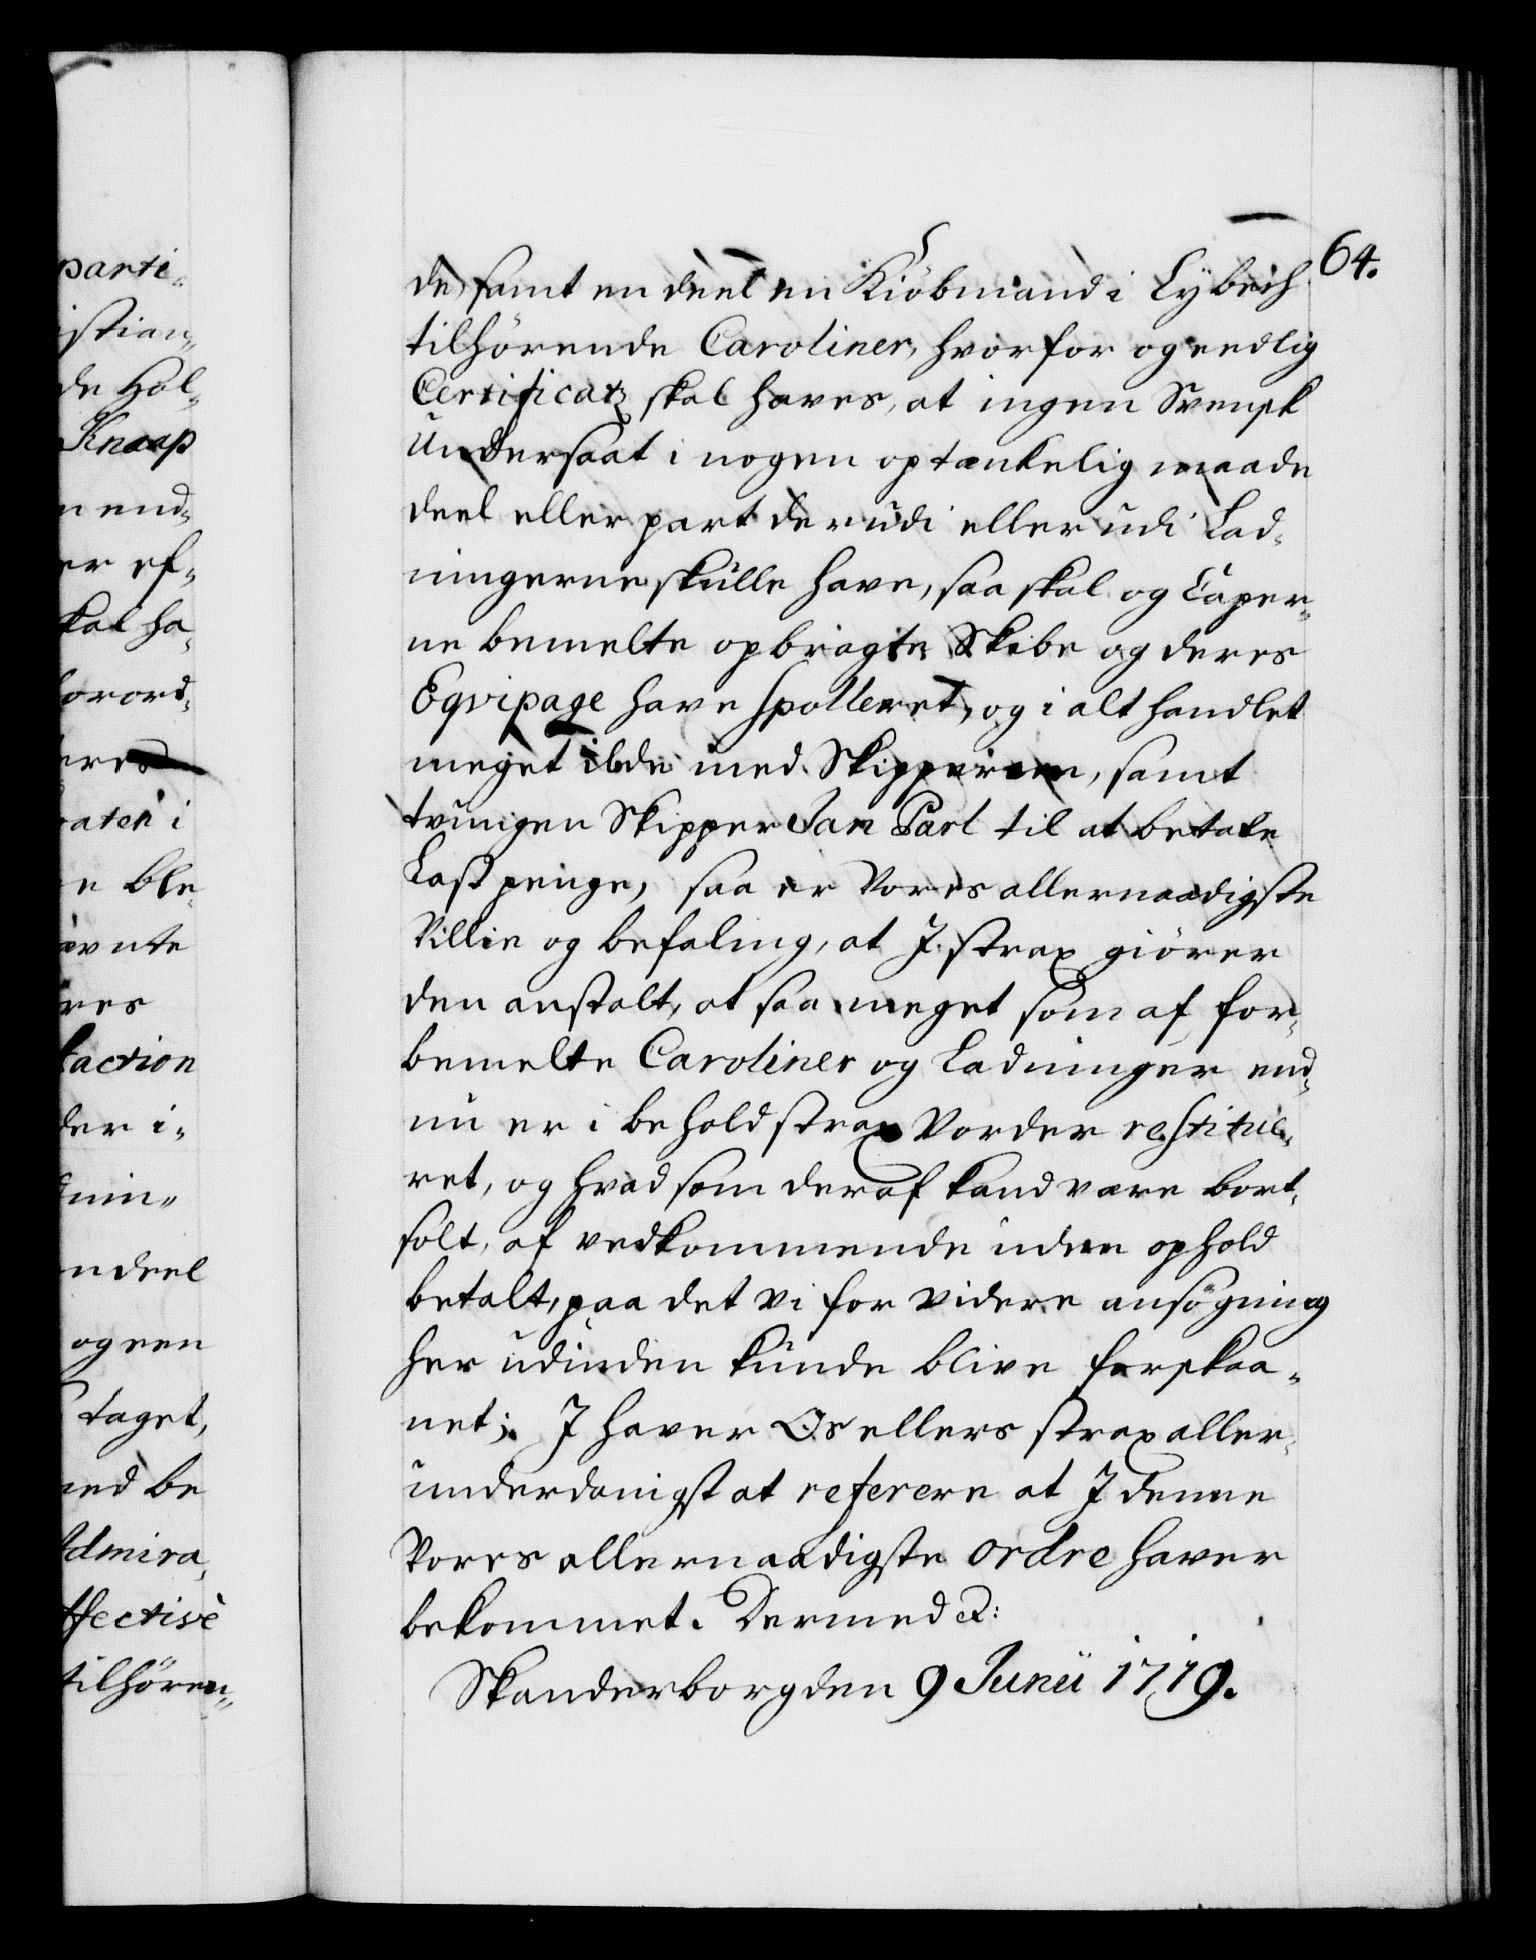 parti-
istian-
de Hol-
Knaap
n end-
er ef-
kal ha-
forord-
eres
raten i
e ble-
ævnte
res
faction
der i-
nin-
ndeel
og een
taget,
ned be
Admira-
ffective
tilhøren-
64.
de, samt en deel en Kiöbmand i Lybech
tilhørende Caroliner, hvorfor og eedlig
Certificatz skal haves, at ingen Svensk
Undersaat i nogen optænkelig maade
deel eller part derudi eller udi Lad-
ningerne skulle have, saa skal og Caper-
ne bemelte opbragte Skibe og deres
Eqvipage have spolleret, og i alt handlet
meget ilde med Skipperne, samt
tvungen Skipper Jan Parl til at betale
Lastpenge, saa er Vores allernaadigste
Villie og befaling, at I strax giører
den anstalt, at saa meget som af for-
bemelte Caroliner og Ladninger end-
nu er i behold strax Vorder restitue-
ret, og hvad som deraf kand være bort-
solt, af vedkommende uden ophold
betalt, paa det vi for videre ansøgning
her udinden kunde blive forskaa-
net; I haver Os ellers strax aller-
underdanigst at referere at I denne
Vores allernaadigste ordre haver
bekommet. Dermed etc:
Skanderborg den 9 Junii 1719.